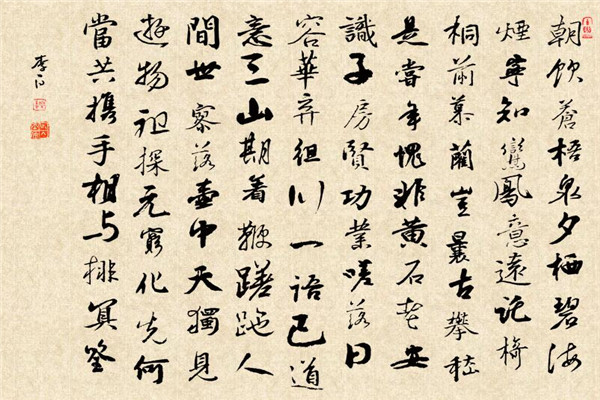 朝飲蒼梧泉夕栖碧海
煙寧知鸞鳳意遠託椅
桐前慕藺豈曩古攀嵇
是當年愧非黃石老安
識子房賢功業嗟落日
容華弃徂川一語已道
意三山期着鞭蹉跎人
間世寥落壺中天獨見
遊物祖探元窮化先何
當共携手相与排冥筌